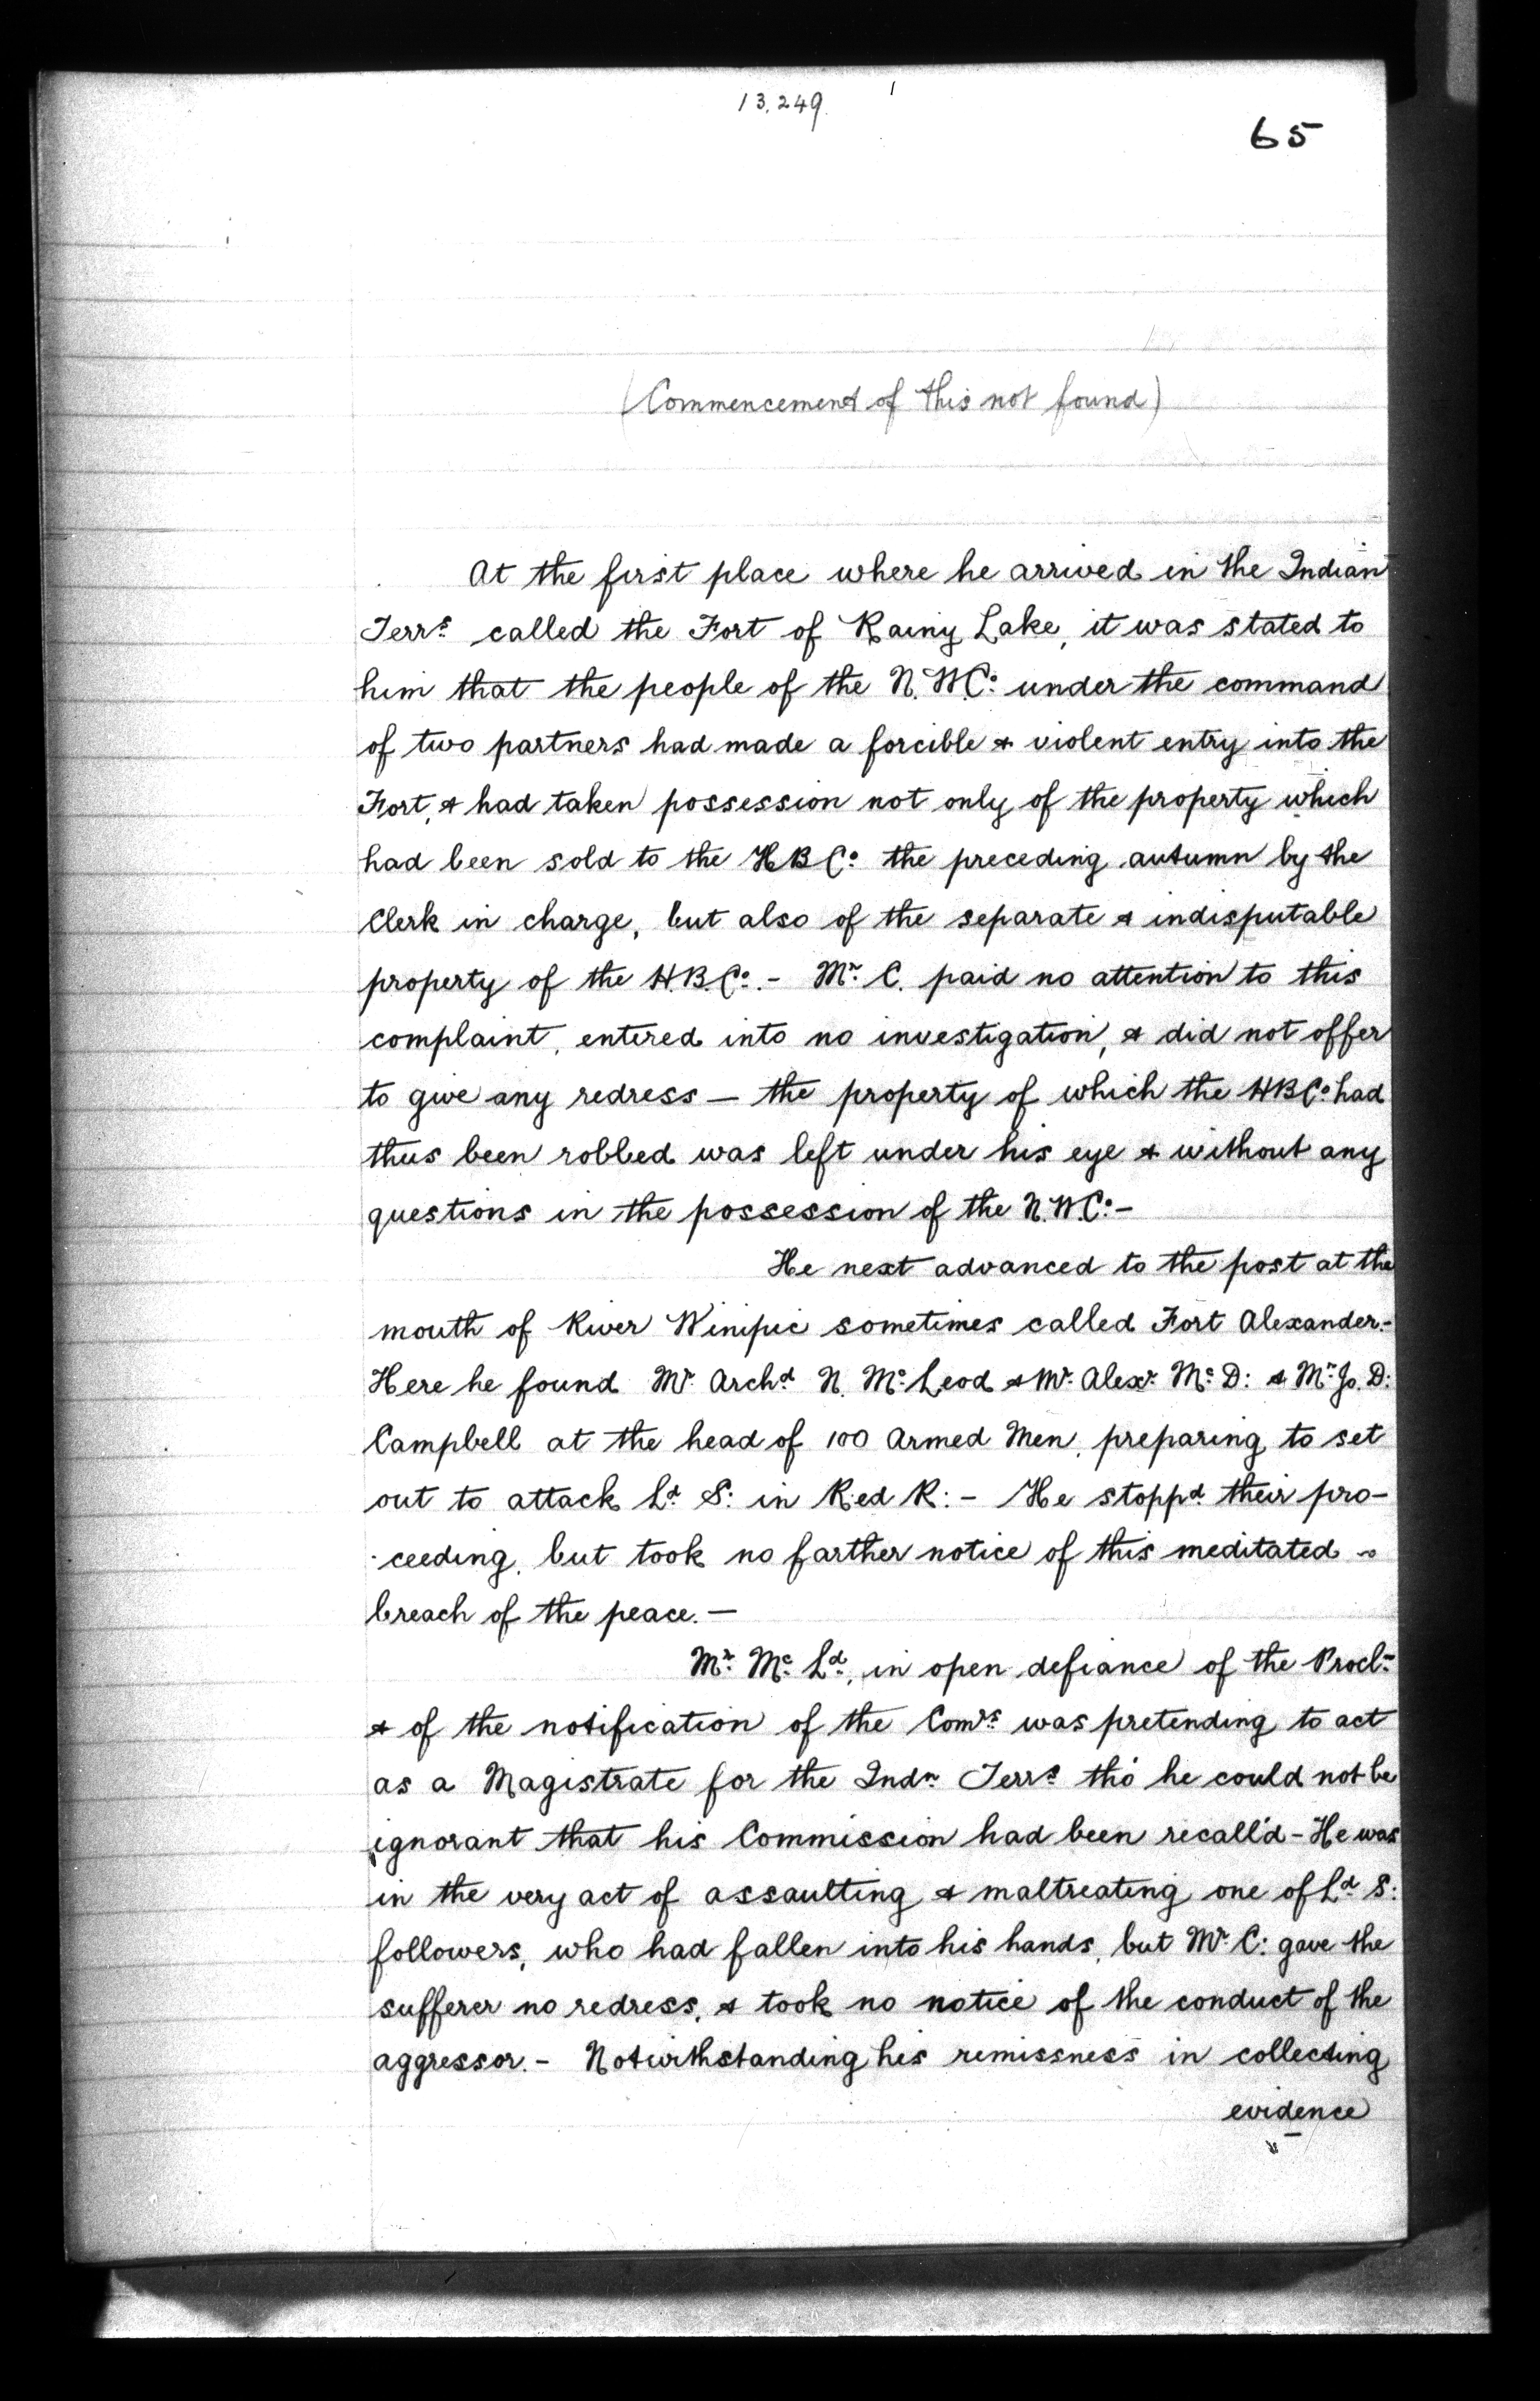 13,249.
65
(Commencement of this not found)
At the first place where he arrived in the Indian
Terrs. called the Fort of Rainy Lake, it was stated to
him that the people of the N.W.Co: under the command
of two partners had made a forcible & violent entry into the
Fort, & had taken possession not only of the property which
had been sold to the HBCo: the preceding autumn by the
Clerk in charge, but also of the separate & indisputable
property of the H.B.Co:.- Mr. C. paid no attention to this
complaint, entered into no investigation, & did not offer
to give any redress — the property of which the HBCo: had
thus been robbed was left under his eye & without any
questions in the possession of the N.W.Co:-
He next advanced to the post at the
mouth of River Winipic sometimes called Fort Alexander.-
Here he found Mr. Archd. N. Mc.Leod & Mr. Alexr. Mc. D: & Mr. Jo. D:
Campbell at the head of 100 Armed Men, preparing to set
out to attack Ld. S: in Red R: - He stoppd. their pro-
-ceeding, but took no farther notice of this meditated ~
breach of the peace. —
Mr. Mc. Ld., in open defiance of the Procln.
& of the notification of the Comrs. was pretending to act
as a Magistrate for the Indn. Terrs. tho' he could not be
ignorant that his Commission had been recall'd - He was
in the very act of assaulting & maltreating one of Ld. S:
followers, who had fallen into his hands, but Mr. C: gave the
sufferer no redress, & took no notice of the conduct of the
aggressor. - Notwithstanding his remissness in collecting
evidence